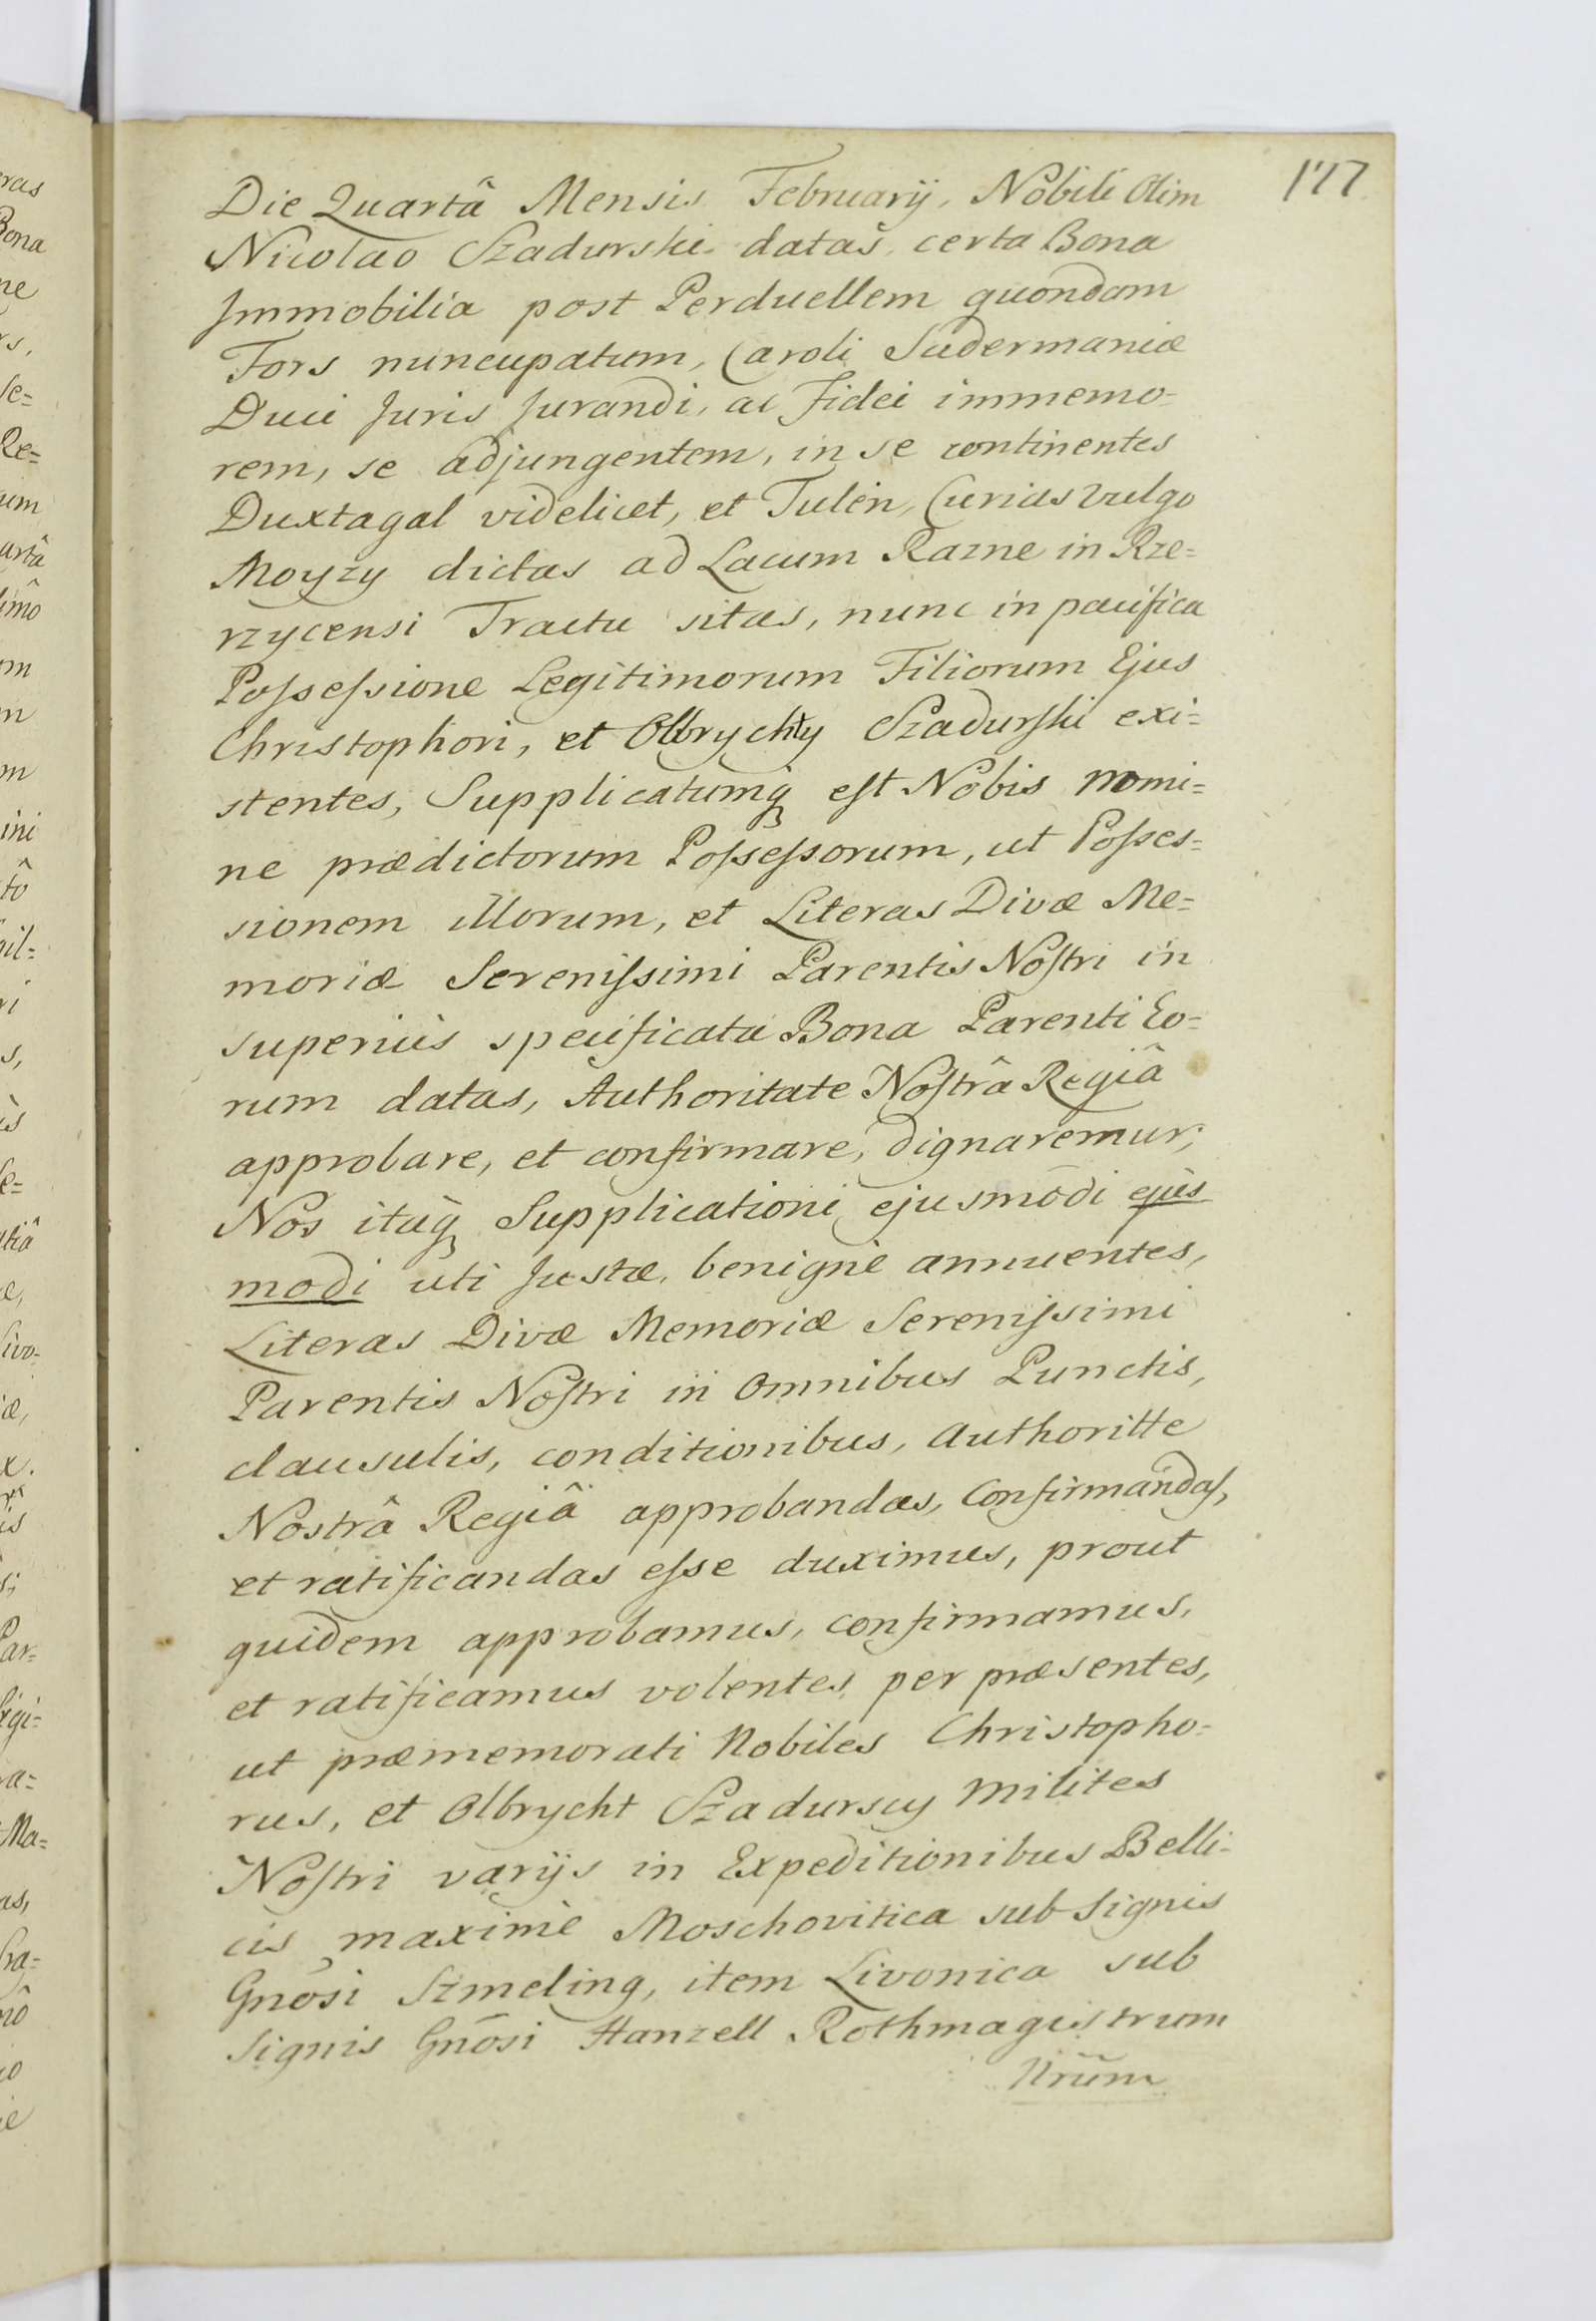 177
Die Quartâ Mensis Februarij, Nobili Olim
Nicolao Szadurski datas certa Bona
Immobilia post Perduellem quondam
Fors nuncupatum, Caroli Sudermaniæ
Duci Juris Jurandi, ac Fidei immemo=
rem, se adjungentem, in se continentes
Duxtagal videlicet, et Tulen, Curias vulgo
Moyzy dictas ad Lacum Razne in Rze=
rzycensi Tractu sitas, nunc in pacifica
Poſseſsione Legitimorum Filiorum Ejus
Christophori, et Olbrychty Szadurſki exi=
stentes, Supplicatumq̃ eſt Nobis nomi=
ne prædictorum Poſseſsorum, ut Poſses=
sionem illorum, et Literas Divæ Me=
moriæ Sereniſsimi Parentis Noſtri in
superiùs specificata Bona Parenti Eo=
rum datas, Authoritate Noſtrâ Regiâ
approbare, et confirmare, dignaremur;
Nos itaq̃ Supplicationi ejusmodi ejùs
modi uti Justæ, benignè annuentes,
Literas Divæ Memoriæ Sereniſsimi
Parentis Noſtri in Omnibus Punctis,
clausulis, conditionibus, Authoritte
Nostrâ Regiâ approbandas, Confirmandaſ,
et ratificandas eſse duximus, prout
quidem approbamus, confirmamus,
et ratificamus volentes per præsentes,
ut præmemorati Nobiles Christopho=
rus, et Olbrycht Szadurscy milites
Noſtri varijs in Expeditionibus Belli=
cis maximè Moschovitica sub Signis
Gnõsi Szmeling, item Livonica sub
Signis Gnõsi Hanzell Rothmagistrum
Nrũm